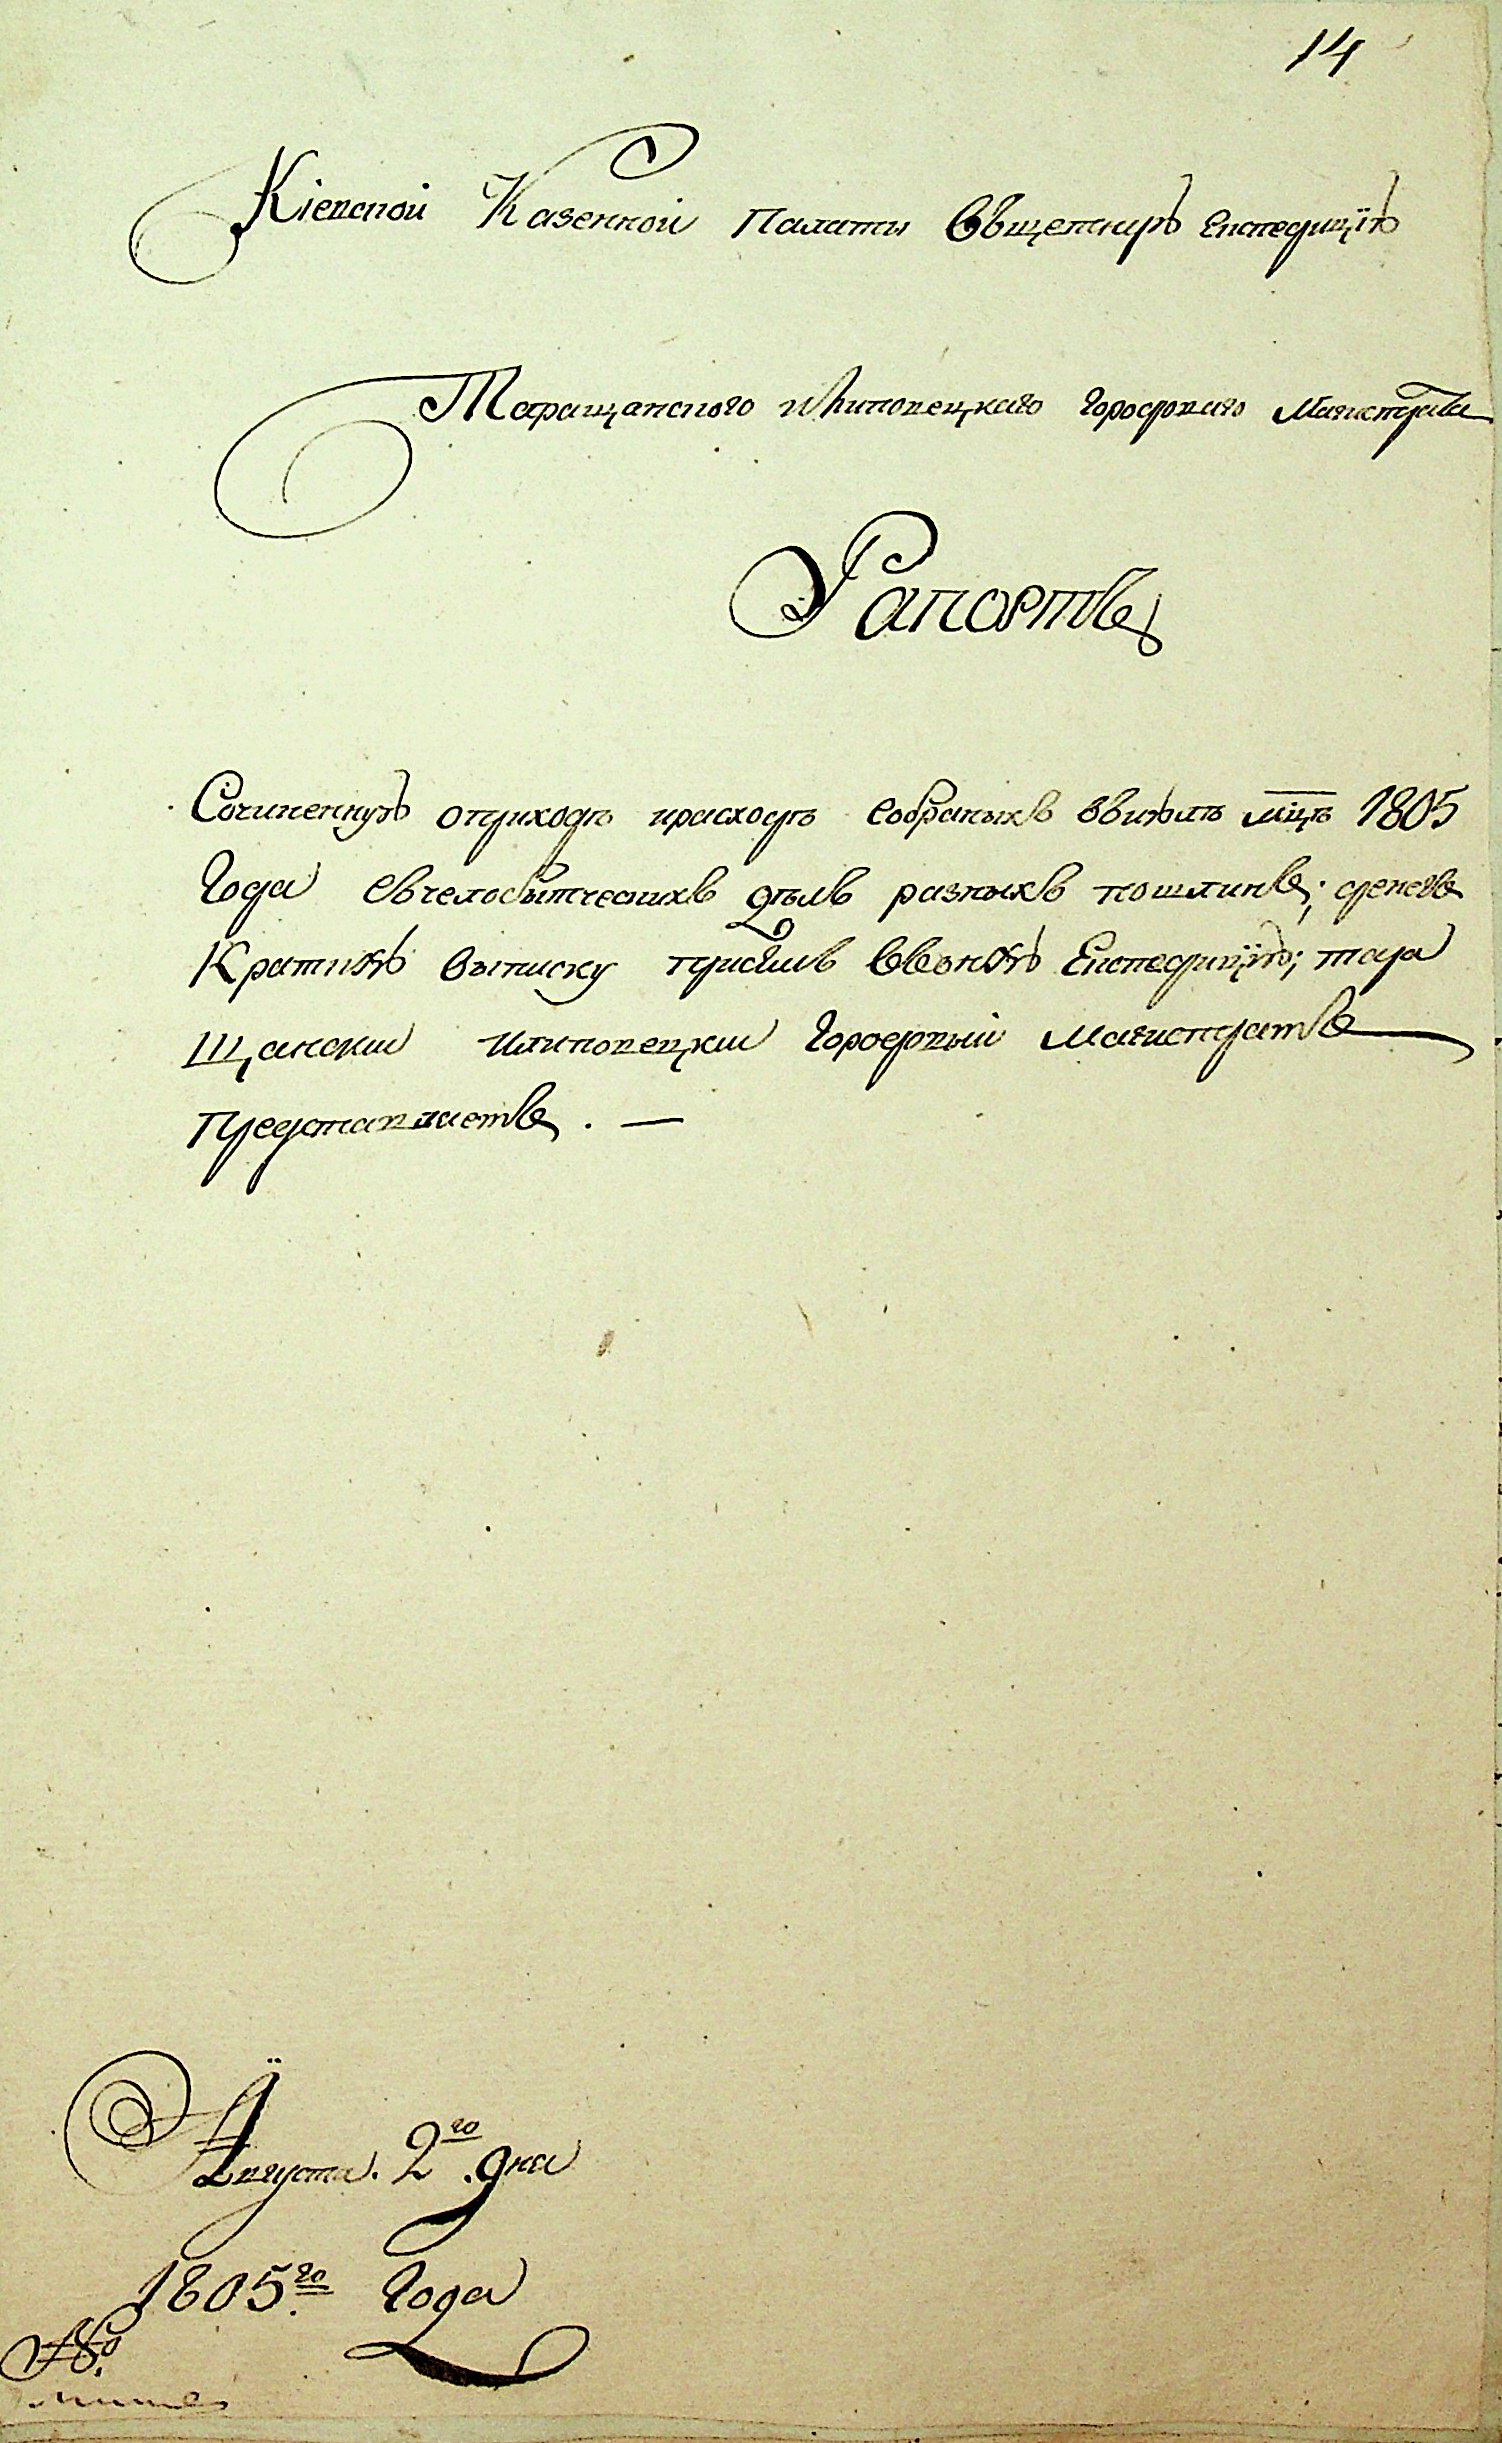 14
Кіевской Казенной Палаты Въщетную Експедицїю
Таращанского иЛиповецкаго городоваго Магистрата
Рапортъ
Сочиненную оприходѣ ирасходѣ собраныхъ вьиюлѣ мцѣ 1805
Года съчелобытческихъ дѣлъ разныхъ пошлинъ; денегъ
Краткую выписку присемъ въвъную Експедицїю; тара
Щанский илиповецкий городовый магистратъ
Представляетъ. —
Августа. 2го дня
1805.го Года
№